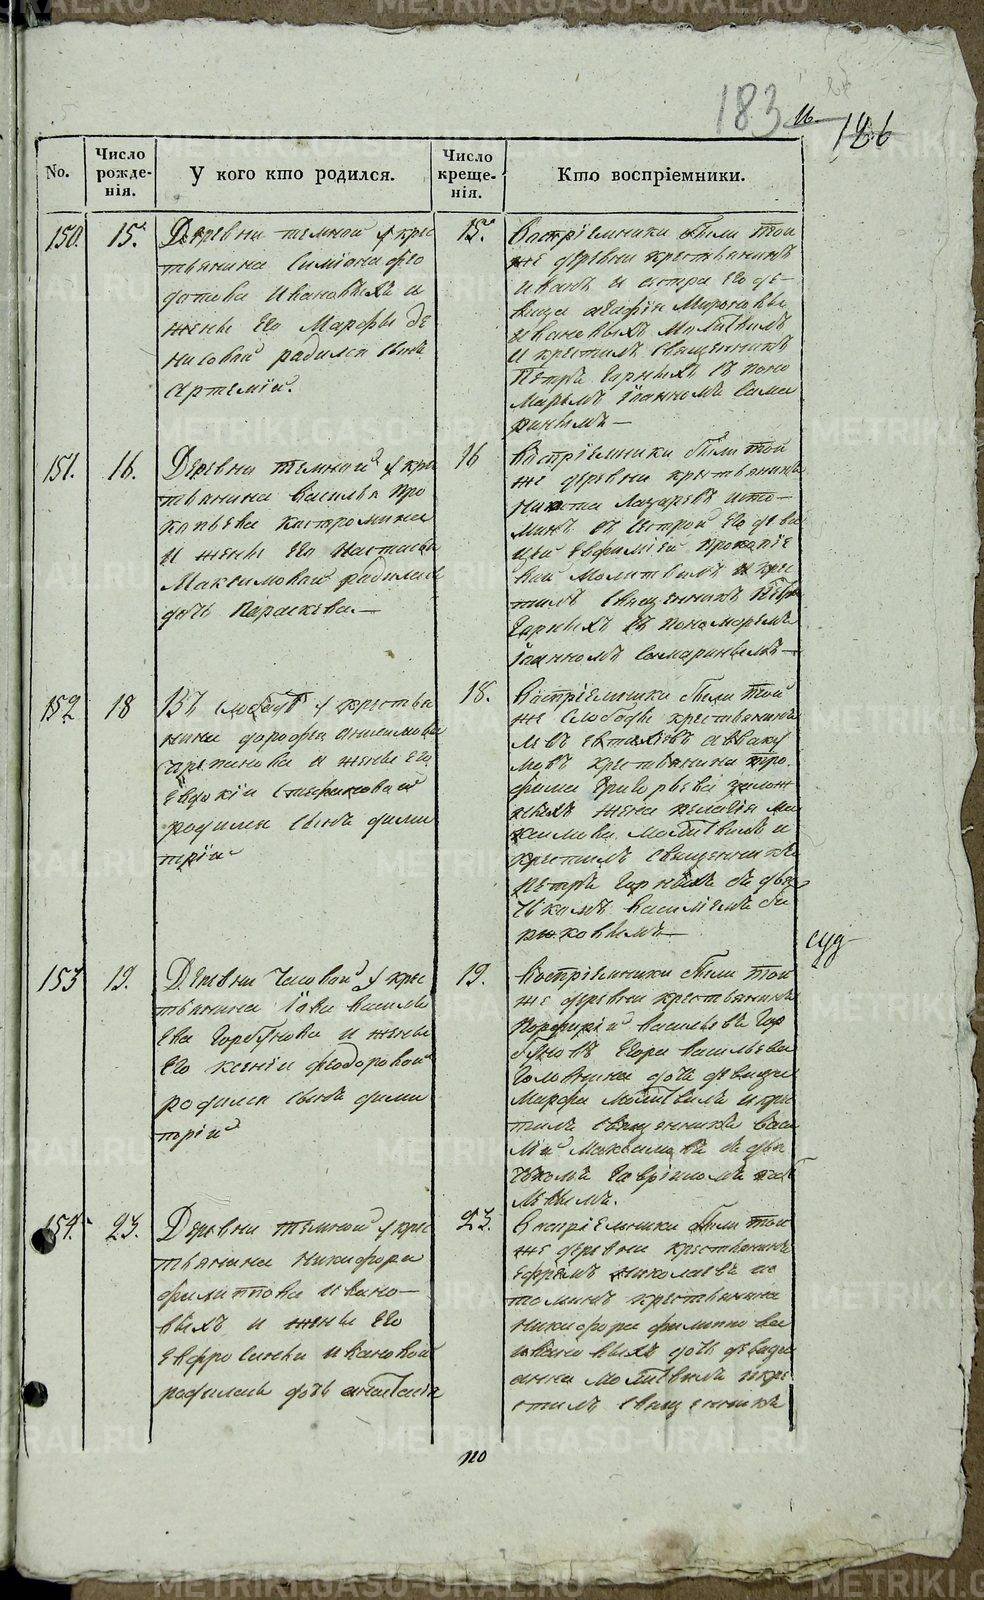 183
126
No.
Число рожде-нія.
У кого кто родился.
Число креще-нія.
Кто воспріемники.
150.
15.
Деревни темной у крес
тьянина Симіона фео
дотова Ивановыхъ и
жены его Марфы де
нисовой родился сынъ
Артемій.
15.
Воспріемники были той
же деревни крестьянинъ
Иванъ и сестра его де-
вица агафія Миронова
Ивановыхъ Молитвилъ
и крестилъ священникъ
Петръ Горныхъ съ поно
маремъ Іоанномъ Сама
ринымъ —
151.
16.
Деревни темной у крес
тьянина Василья Про
копьева Костромина
и жены его Настасьи
Максимовой родилась
дочь Параскева. —
16
Воспріемники были той
же деревни крестьянинъ
Никита Лазаревъ исто-
минъ съ Сестрой его деви
цей Евфиміей Прокопіе
вой Молитвилъ и крес
тилъ Священникъ Петръ
Горныхъ съ Пономаремъ
Іоанномъ Самаринымъ —
152
18
Въ слободѣ у крестья
нина дорофея Анисимова
его
Евдокіи Стефановой
родился Сынъ дими
трій
18.
Воспріемники были той
же Слободы крестьянинъ
левъ
мовъ крестьянина тро
фима Григорьева
жена пелагія ма
ксимова. Молитвилъ и
крестилъ Священникъ
Петръ Горныхъ съ дья
чкомъ Василіемъ Би
рюковымъ —
суд-
153
19.
Деревни Часовой у крес
тьянина Іова Василь
ева Горбунова и жены
его ксеніи феодоровой
родился сынъ дими
трій
19.
Воспріемники были той
же деревни крестьянинъ
Порфирій Васильевъ Гор
буновъ Егора Васильева
дочь девица
Марфа Молитвилъ и крес
тилъ Священникъ Васи
лій Максимовъ съ дья
чкомъ Гавріиломъ
154.
23.
Деревни темной у крес
тьянина Никифора
филиппова Ивано-
выхъ и жены его
Евфросиньи Ивановой
родилась дочь анастасія
23.
Воспріемники были той
же деревни крестьянинъ
Ефремъ Николаевъ ис
томинъ крестьянина
Никифора филиппова
Ивановыхъ дочь девица
анна Молитвилъ и кре
стилъ Священникъ
по
METRIKI.GASO-URAL.RU